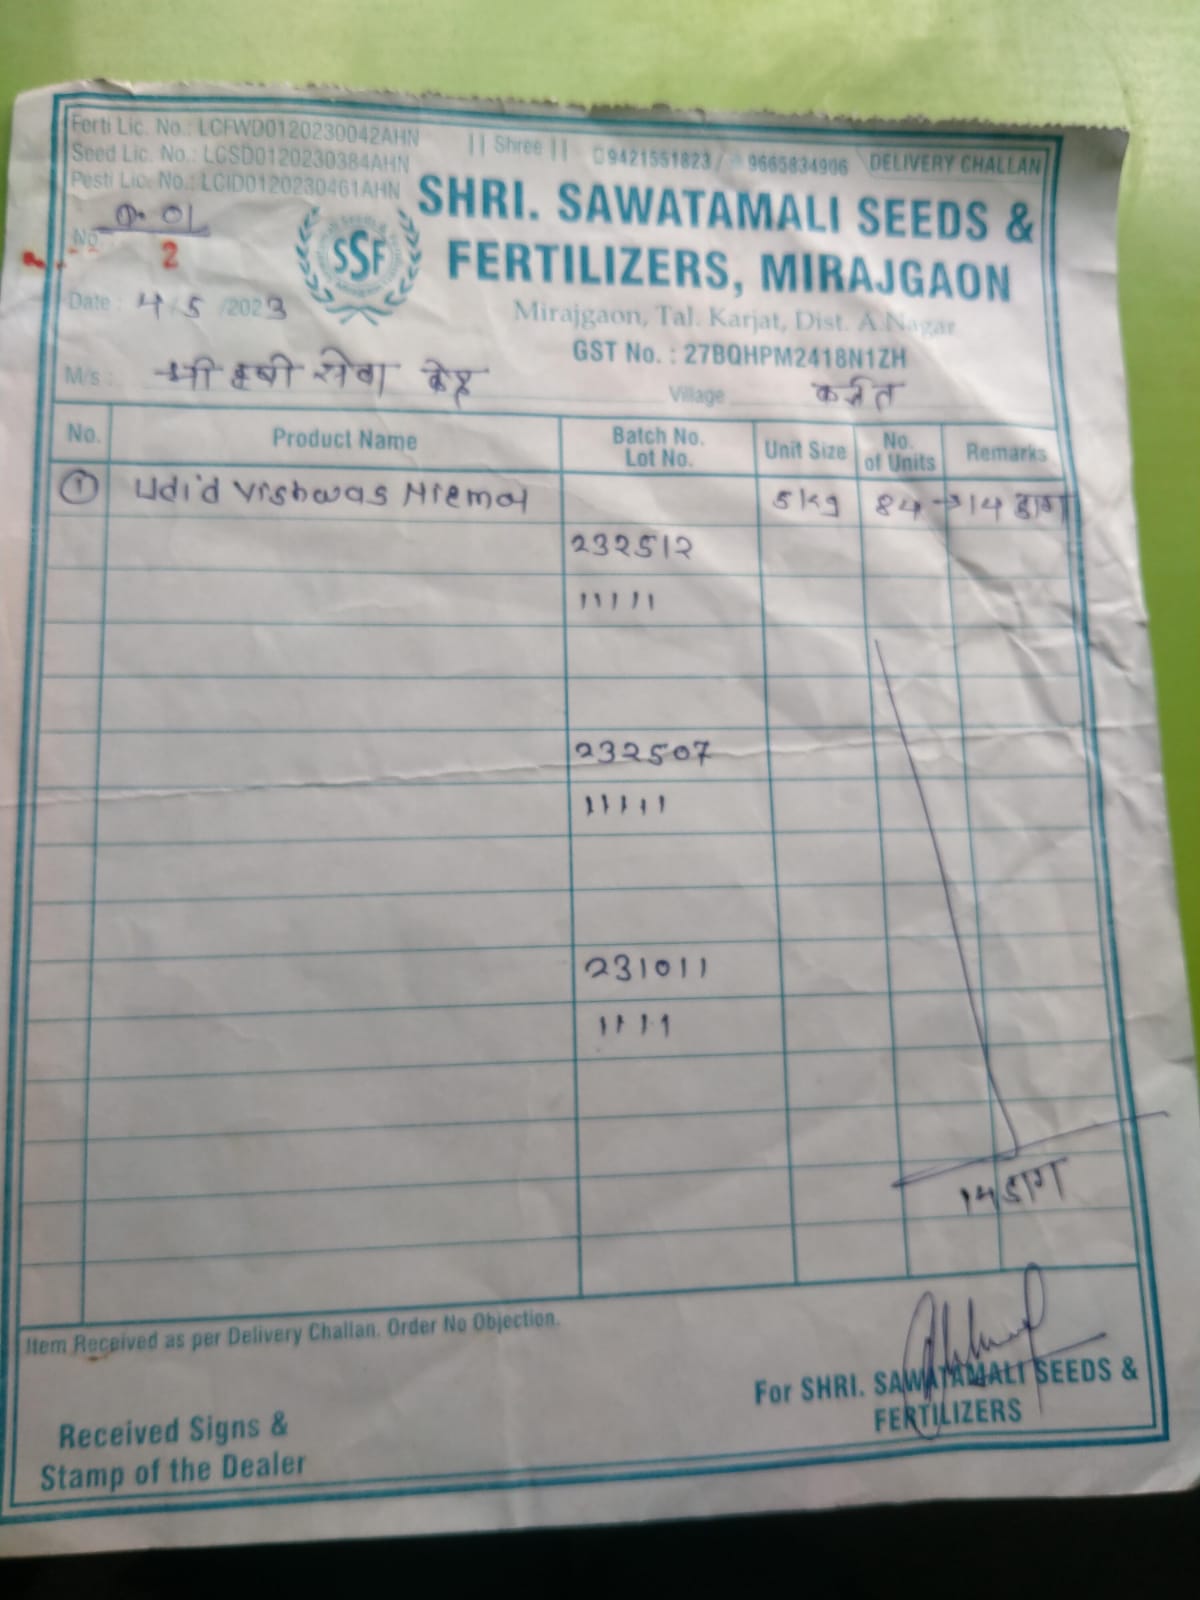 Ferti Lic. No.: LCFWD0120230042AHN
Seed Lic. No.: LCSD0120230384AHN
Pesti Lic. No.: LCID0120230461AHN
|| Shree ||
9421551823 / 9665834906
DELIVERY CHALLAN
SHRI. SAWATAMALI SEEDS &
FERTILIZERS, MIRAJGAON
SSF
Mirajgaon, Tal. Karjat, Dist. A.Nagar
GST No. : 27BQHPM2418N1ZH
01
No. 2
Date : 4/5/2023
M/s : श्री कृषी सेवा केंद्र Village कर्जत
No. Product Name Batch No. Lot No. Unit Size No. of Units Remarks
① Udid Vishwas Nirmal 5kg 84 → 14 डाग
232512
11111
232507
11111
231011
1111
14 डाग
Item Received as per Delivery Challan. Order No Objection.
For SHRI. SAWATAMALI SEEDS &
FERTILIZERS
Received Signs &
Stamp of the Dealer